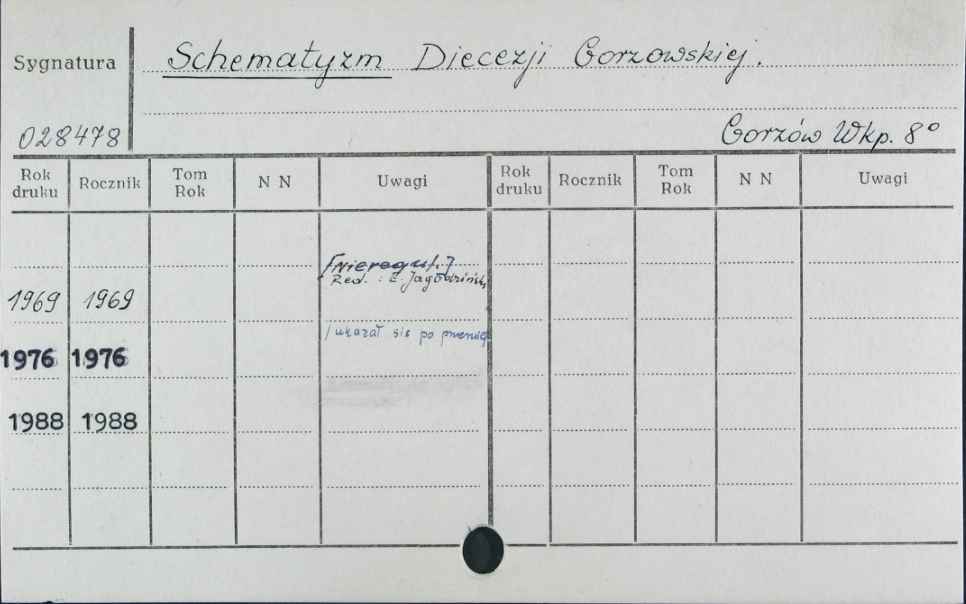 Sygnatura
Schematyzm Diecezji Gorzowskiej.
028478
Gorzów Wkp. 8°
Rok druku Rocznik Tom Rok N N Uwagi Rok druku Rocznik Tom Rok N N Uwagi
[nieregul.]
Red. : E. Jagodziński
1969 1969
/ukazał się po
1976 1976
1988 1988